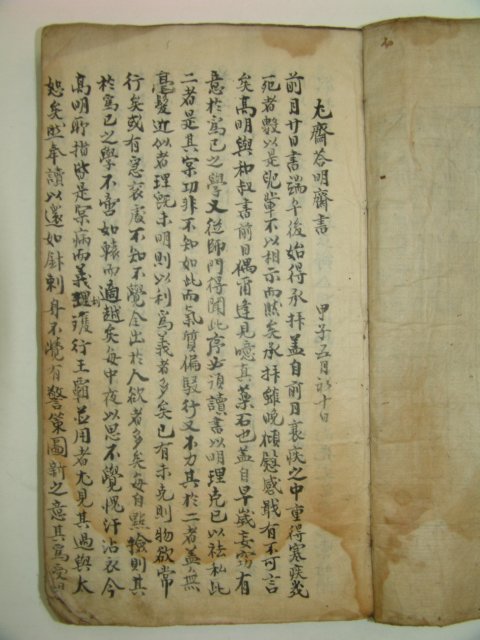 尤齋答明齋書
甲子五月初十日
前月廿日書端午後始得承拜盖自前月衰疾之中重得寒疾幾
死者數以是兒輩不以相示而然矣承拜雖晩傾慰感戢有不可言
矣高明與和叔書前日偶爾逢見噫真藥石也盖自早歲妄窃有
意於爲己之學又從師門得聞此序必須讀書以明理克己以祛私此
二者是真宲功非不知如此而氣質偏駁行又不力其於二者盖無
毫髮近似者理旣未明則以利爲義者多矣己有未克則物欲常
行矣或有急衰處不知不覺全出於人欲者多矣每自點撿則其
於爲己之學不啻如轅而適越矣每中夜以思不覺愧汗沾衣今
高明所指皆是宲病而義理雙行王霸並用者尤見其過與太
恕矣然奉讀以還如針刺身不覺有警策圖新之意其爲受